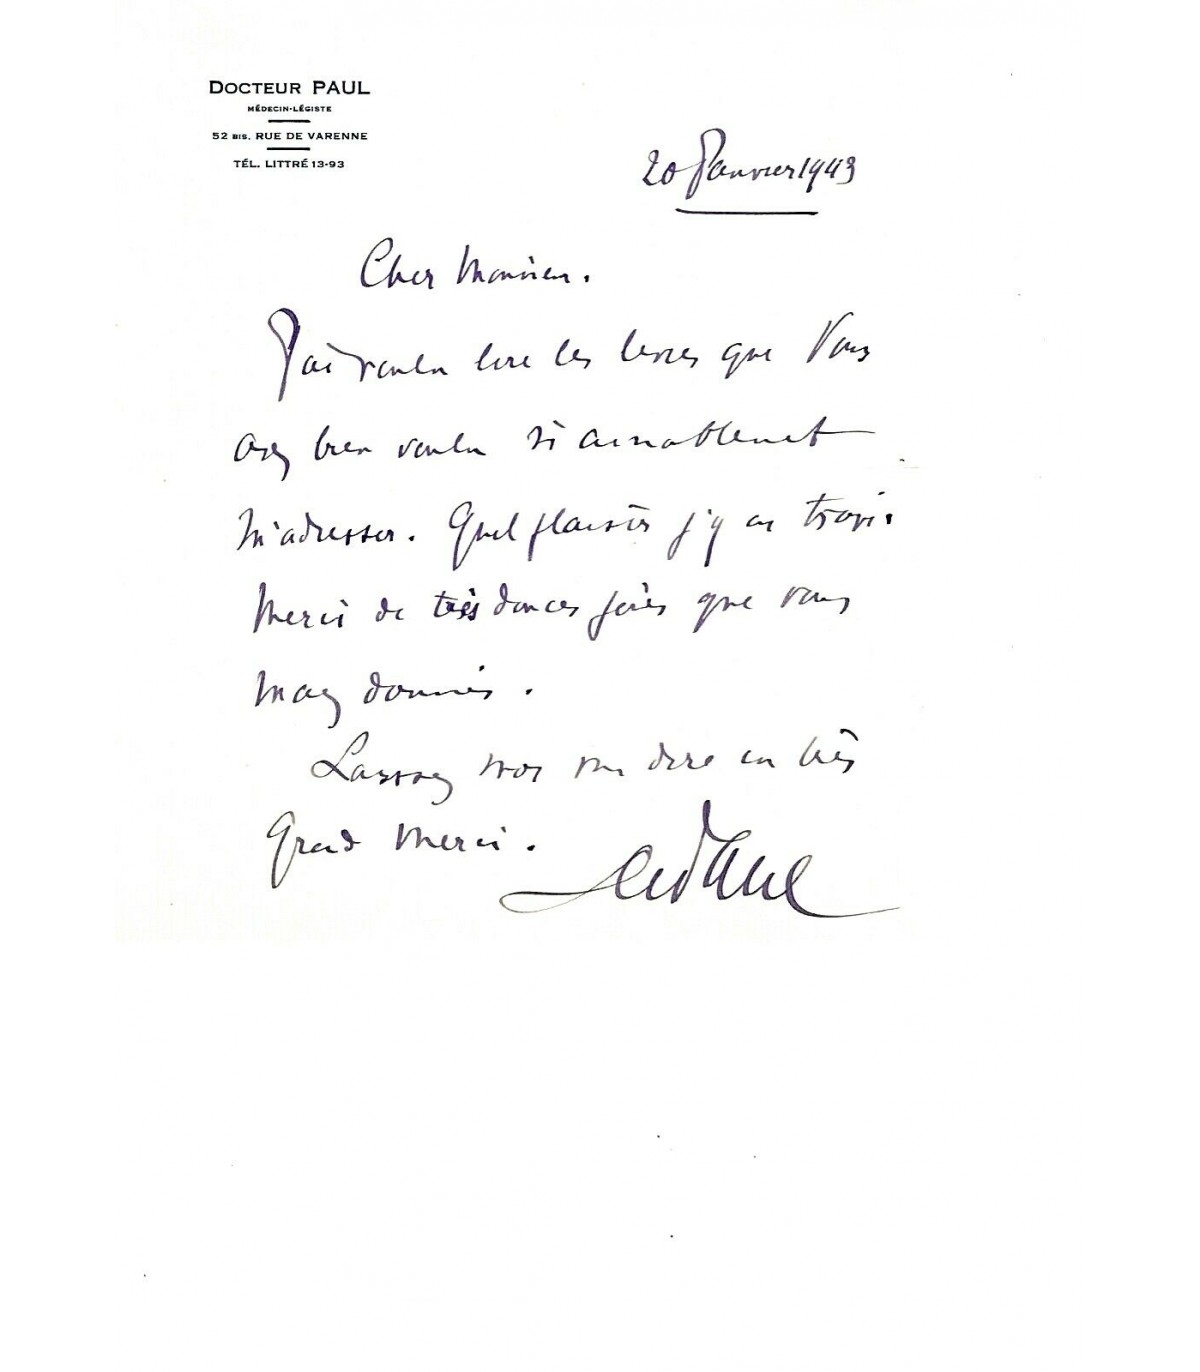 DOCTEUR PAUL
MÉDECIN-LÉGISTE
52 BIS. RUE DE VARENNE
TÉL. LITTRÉ 13-93
20 Janvier 1943
Cher Monsieur.
J'ai voulu lire les livres que Vous
avez bien voulu si aimablement
m'adresser. Quel plaisir j'y ai
Merci de très douces que vous
m'avez données.
Laissez moi vous dire un très
Grand Merci.